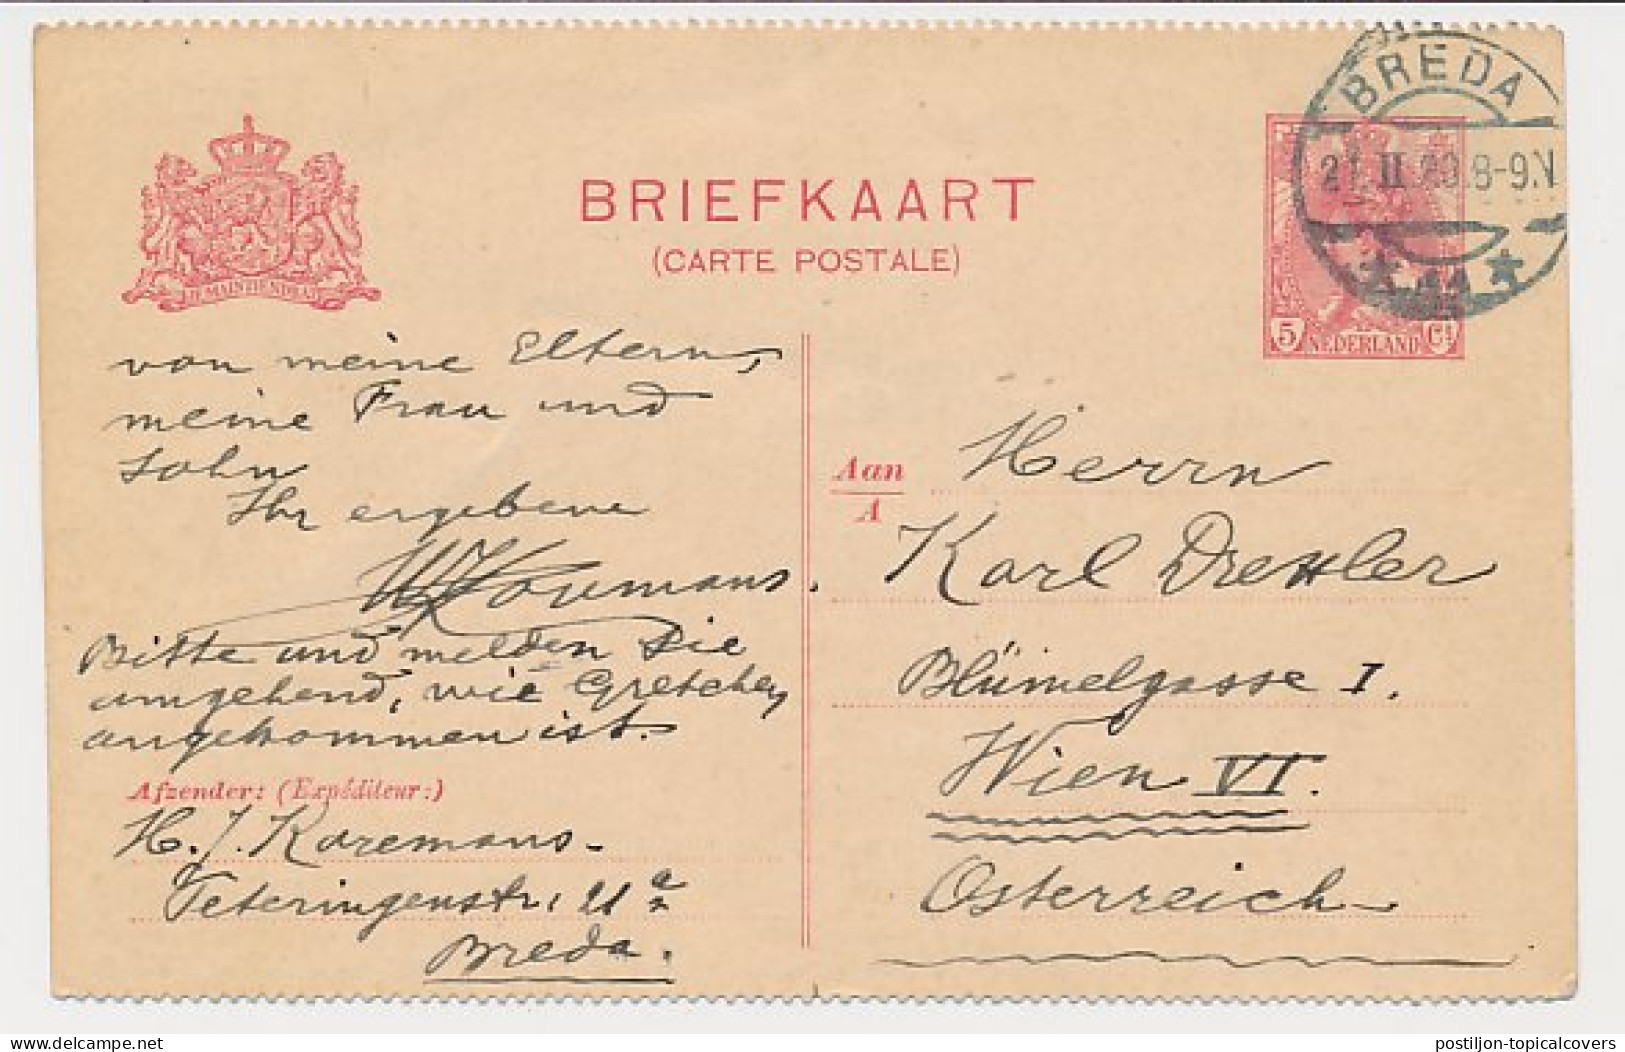 BREDA
21. II 20. 8-9.N
BRIEFKAART
(CARTE POSTALE)
JE MAINTIENDRAI
5 NEDERLAND Ct
von meine Eltern,
meine Frau und
Sohn
Ihr ergebene
Bitte und melden Sie
umgehend, wie Gretchen
angekommen ist.
Afzender: (Expéditeur:)
H. J. Koremans
Teteringenstr. 21a
Breda.
Aan
A
Herrn
Karl Drexler
Blümelgasse I.
Wien VI.
Österreich
postiljon-topicalcovers
delcampe.net